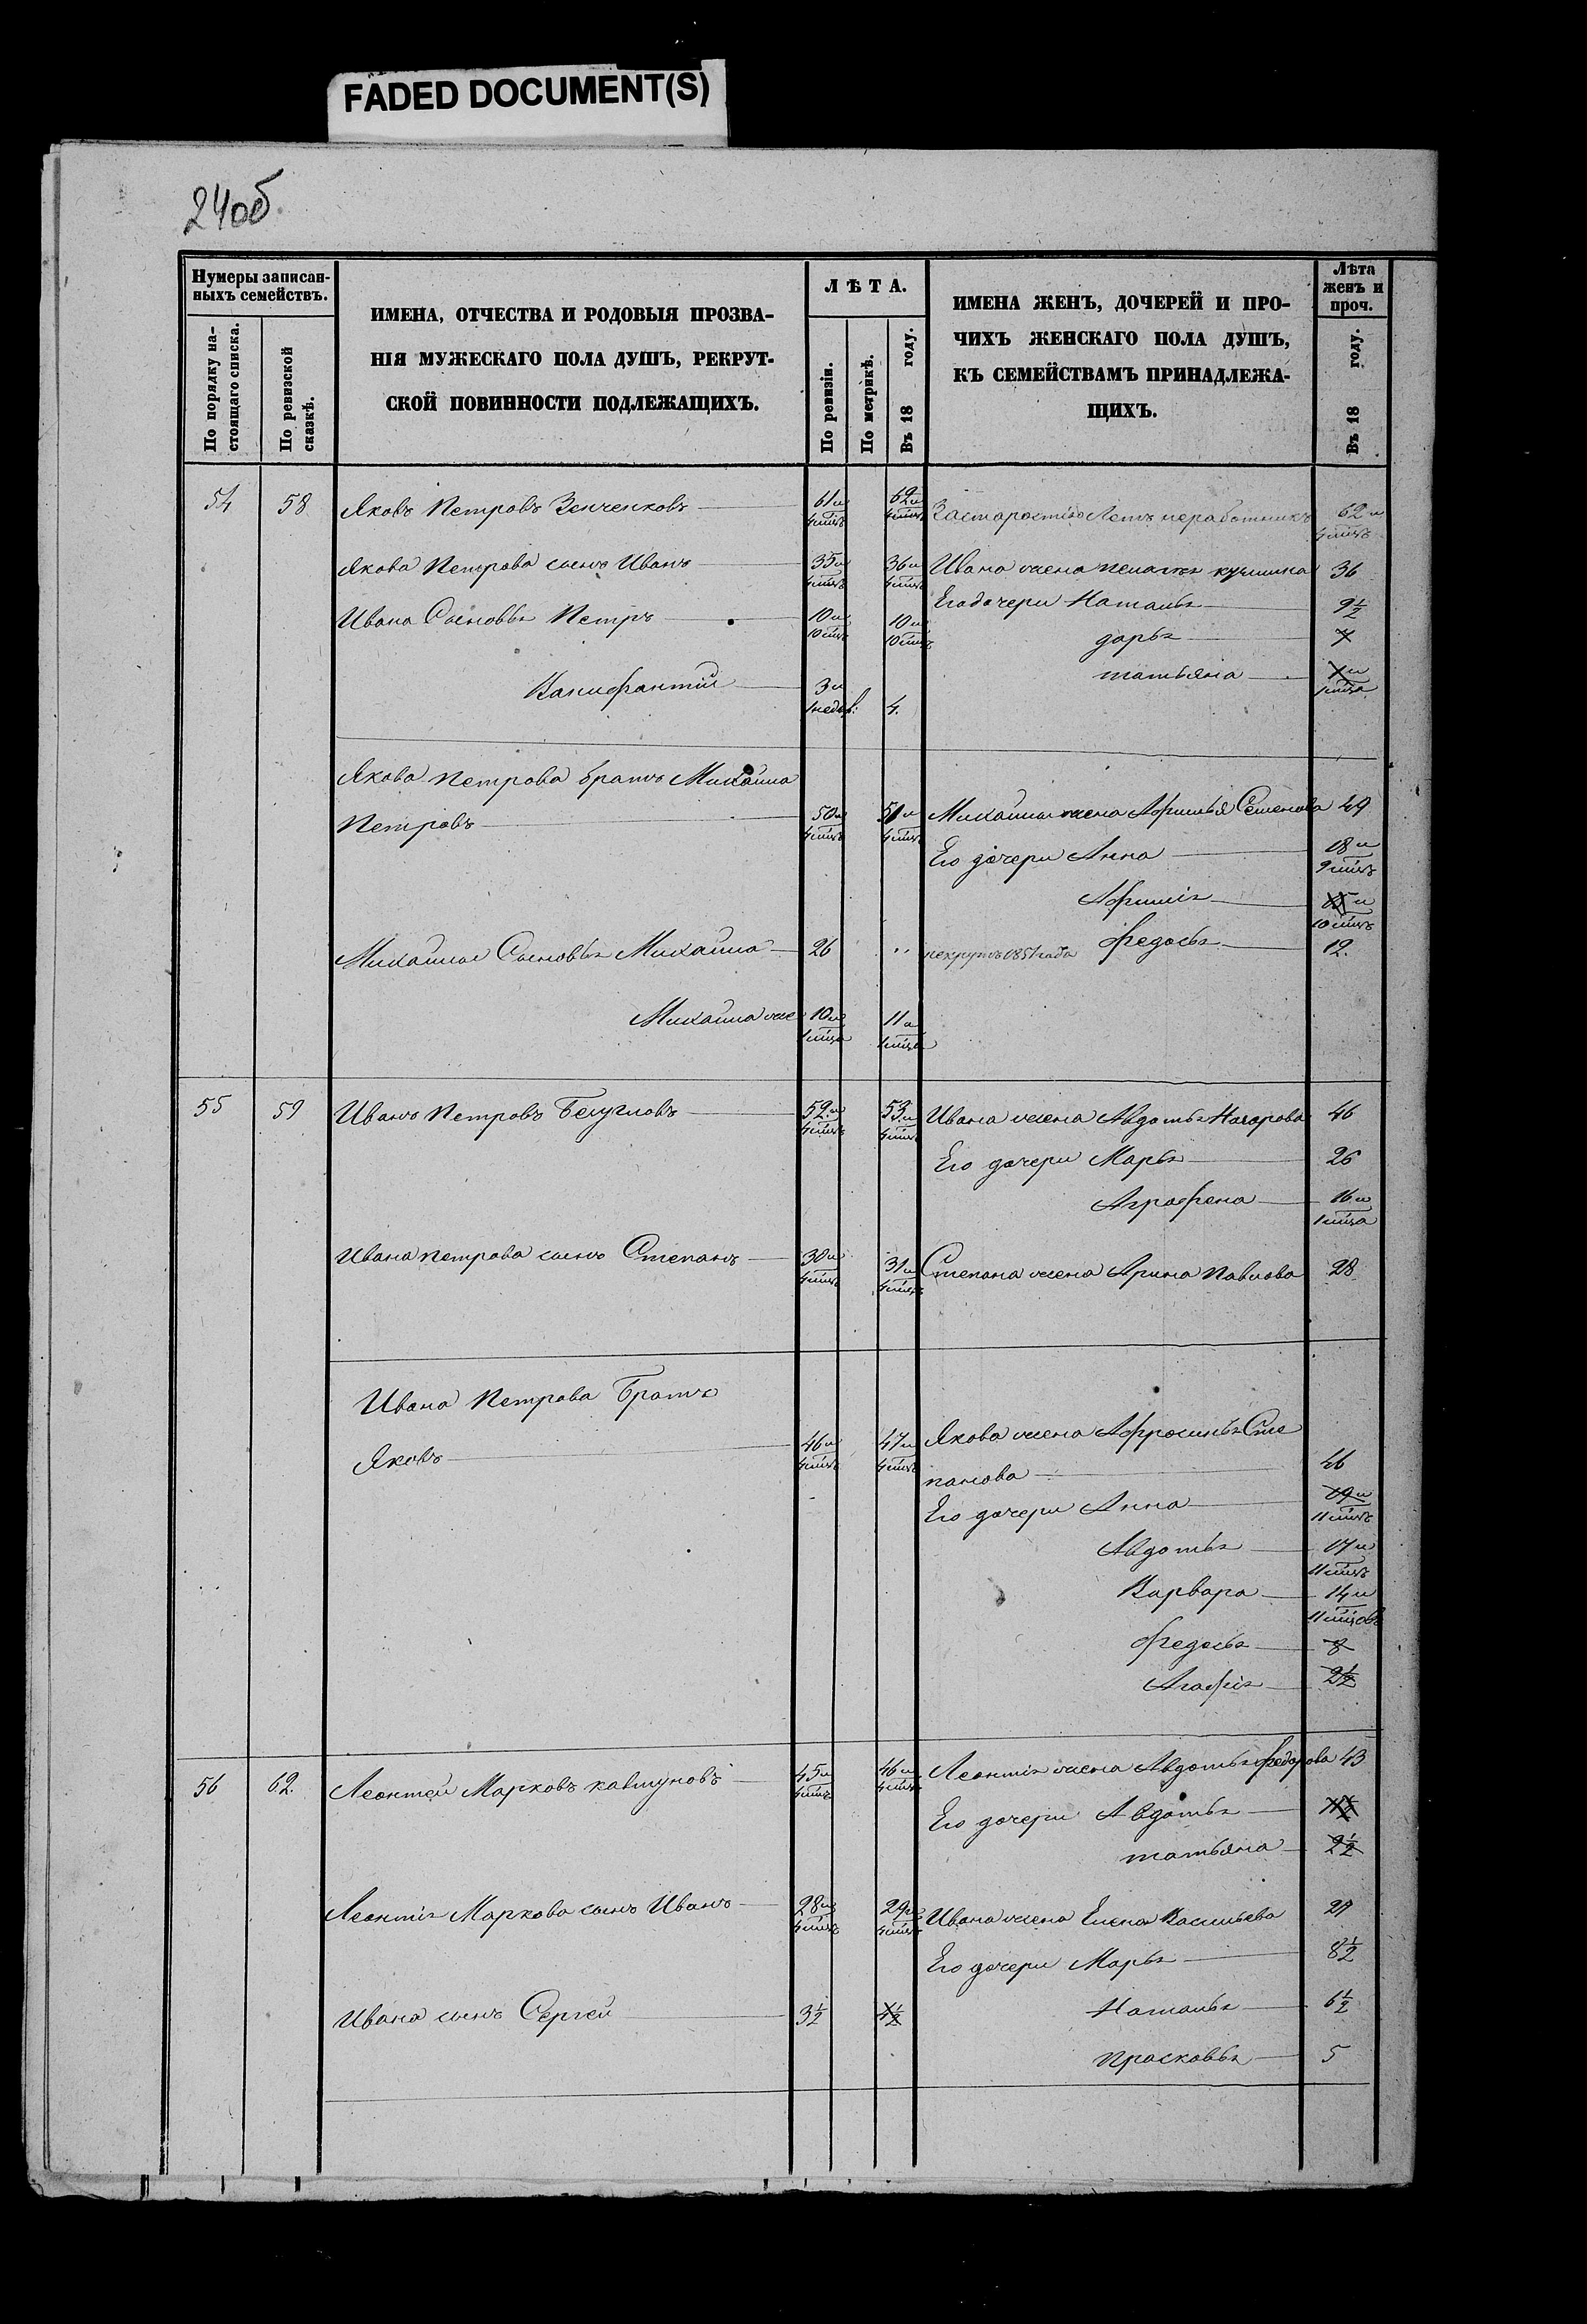 FADED DOCUMENT(S)
24об
Нумеры записан-
ныхъ семействъ.
По порядку на-
стоящаго списка.
По ревизской
сказкѣ.
ИМЕНА, ОТЧЕСТВА И РОДОВЫЯ ПРОЗВА-
НІЯ МУЖЕСКАГО ПОЛА ДУШЪ, РЕКРУТ-
СКОЙ ПОВИННОСТИ ПОДЛЕЖАЩИХЪ.
ЛѢТА.
По ревизіи.
По метрикѣ.
Въ 18 году.
ИМЕНА ЖЕНЪ, ДОЧЕРЕЙ И ПРО-
ЧИХЪ ЖЕНСКАГО ПОЛА ДУШЪ,
КЪ СЕМЕЙСТВАМЪ ПРИНАДЛЕЖА-
ЩИХЪ.
Лѣта
женъ и
проч.
Въ 18 году.
54 58 Яковъ Петровъ Зенченковъ 61 и 4 мцъ 62 и 4 мцъ За старостію Летъ неработникъ 62 и 4 мцъ
Якова Петрова сынъ Иванъ 35 и 4 мцъ 36 и 4 мцъ Ивана жена 36
Ивана Сыновья Петръ 10 и 10 мцъ 10 и 10 мцъ Его дочери Наталья 9½
дарья 7
Ванифантій 3 и 4. татьяна и 1 мца
Якова Петрова братъ Михайла
Петровъ 50 и 4 мцъ 51 и 4 мцъ Михайлы жена Афимья Семенова 49
Его дочери Анна 18 и 9 мцъ
Афимія 15 и 10 мцъ
Михайлы Сыновья Михайла 26 рекрутъ 1851 года федосья 12.
Михайла же 10 и 1 мца 11 и 1 мца
55 59 Иванъ Петровъ Безугловъ 52. и 4 мцъ 53. и 4 мцъ Ивана жена Авдотья 46
Его дочери Марья 26
Аграфена 16 и 1 мца
Ивана петрова сынъ Степанъ 30 и 4 мцъ 31 и 4 мцъ Степана жена Арина Павлова 28
Ивана Петрова Братъ
Яковъ 46 и 4 мцъ 47 и 4 мцъ Якова жена Афросинья Сте
панова 46
Его дочери Анна 19 и 11 мцъ
Авдотья 17 и 11 мцъ
Варвара 14 и 11 мцовъ
федосья 8
Агафія 2½
56 62. Леонтей Марковъ кавтуновъ 45 и 4 мцъ 46 и 4 мцъ Леонтія жена Авдотья федорова 43
Его дочери Авдотья
татьяна 2½
Леонтія Маркова сынъ Иванъ 28 и 4 мцъ 29 и 4 мцъ Ивана жена Елена Васильева 27
Его дочери Марья 8½
Ивана сынъ Сергей 3½ 4½ Наталья 6½
прасковья 5